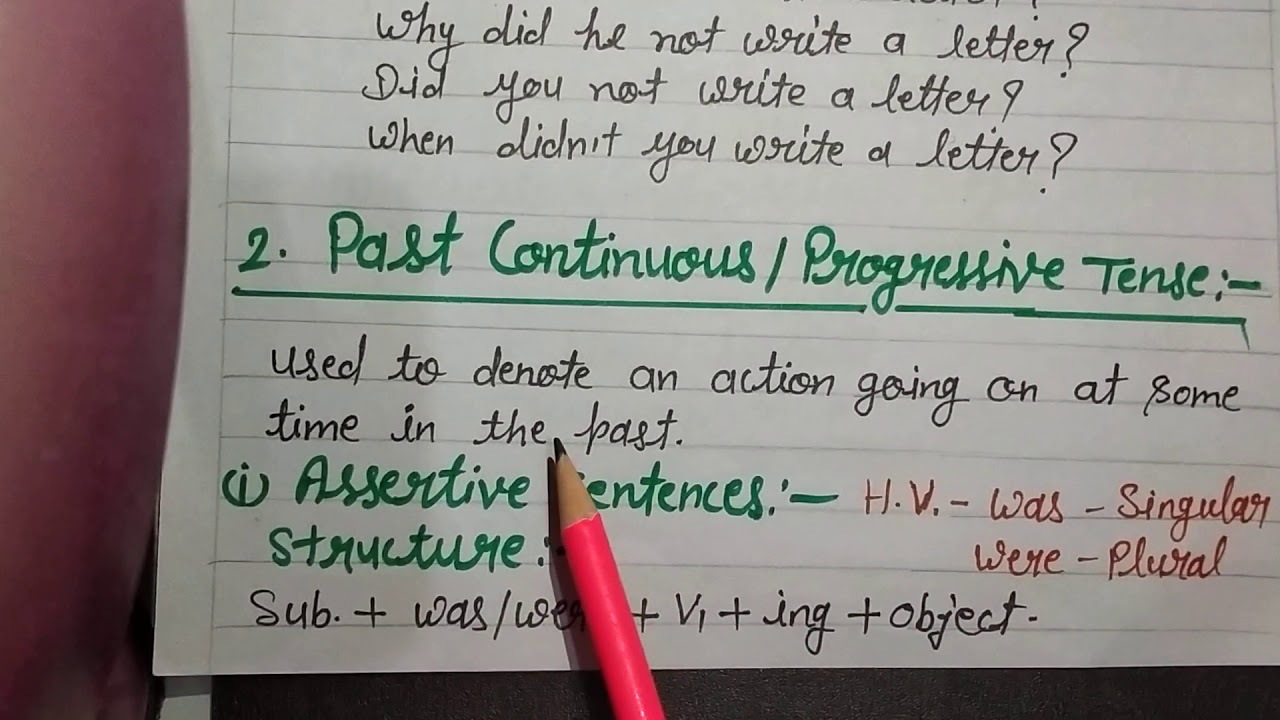 Why did he not write a letter?
Did you not write a letter?
When didn't you write a letter?
2. Past Continuous/Progressive Tense:-
used to denote an action going on at some
time in the past.
(i) Assertive entences:- H.V. - was - Singular
Structure:- Were - Plural
Sub. + was/wer + V₁ + ing + object.